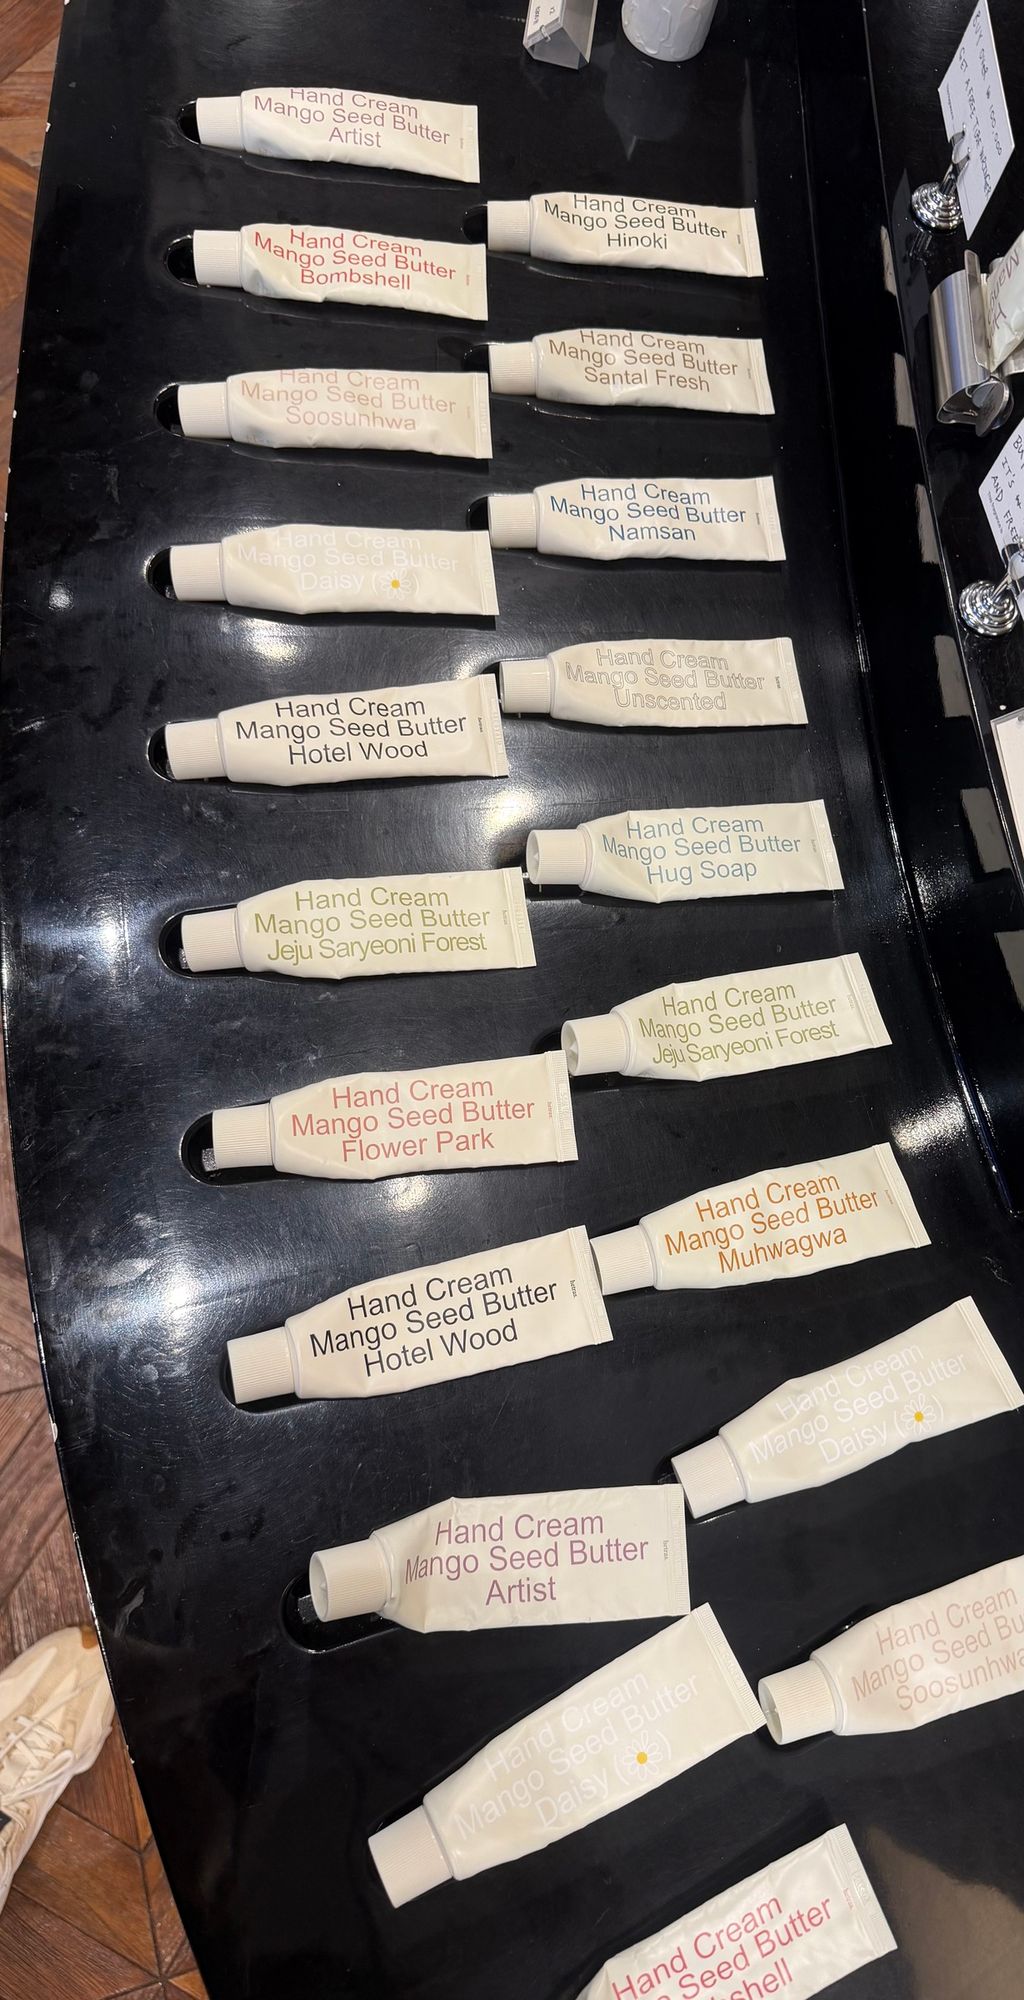 Hand Cream
Mango Seed Butter
Artist
Hand Cream
Mango Seed Butter
Hinoki
Hand Cream
Mango Seed Butter
Bombshell
Hand Cream
Mango Seed Butter
Santal Fresh
Hand Cream
Mango Seed Butter
Soosunhwa
Hand Cream
Mango Seed Butter
Namsan
Hand Cream
Mango Seed Butter
Daisy (
Hand Cream
Mango Seed Butter
Unscented
hetras
Hand Cream
Mango Seed Butter
Hotel Wood
hetras
Hand Cream
Mango Seed Butter
Hug Soap
Hand Cream
Mango Seed Butter
Jeju Saryeoni Forest
hetras
Hand Cream
Mango Seed Butter
Jeju Saryeoni Forest
Hand Cream
Mango Seed Butter
Flower Park
hetras
Hand Cream
Mango Seed Butter
Muhwagwa
Hand Cream
Mango Seed Butter
Hotel Wood
hetras
Hand Cream
Mango Seed Butter
Daisy (
Hand Cream
Mango Seed Butter
Artist
hetras
Hand Cream
Mango Seed Bu
Soosunhwa
Hand Cream
Mango Seed Butter
Daisy (
Hand Cream
Seed Butter
shell
hetras